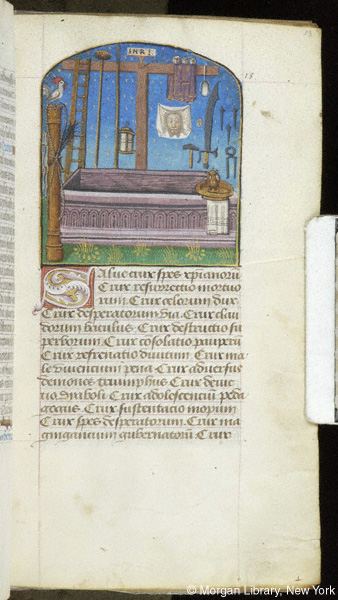 INRI
18
Salue crux spes xpianorū
Crux resurrectio mortuo
rum. Crux celorum dux
Crux desperatorum via. Crux clau
dorum baculus. Crux destructio su
perborum. Crux cōsolatio paupeꝝ
Crux refrenatio diuitum. Crux ma
le viuencium pena. Crux aduersus
demones triumphus. Crux deuic
tio dyaboli. Crux adolescenciū peda
gogus. Crux sustentacio inopum
Crux spes desperatorum. Crux na
uigancium gubernatorū. Crux
© Morgan Library, New York